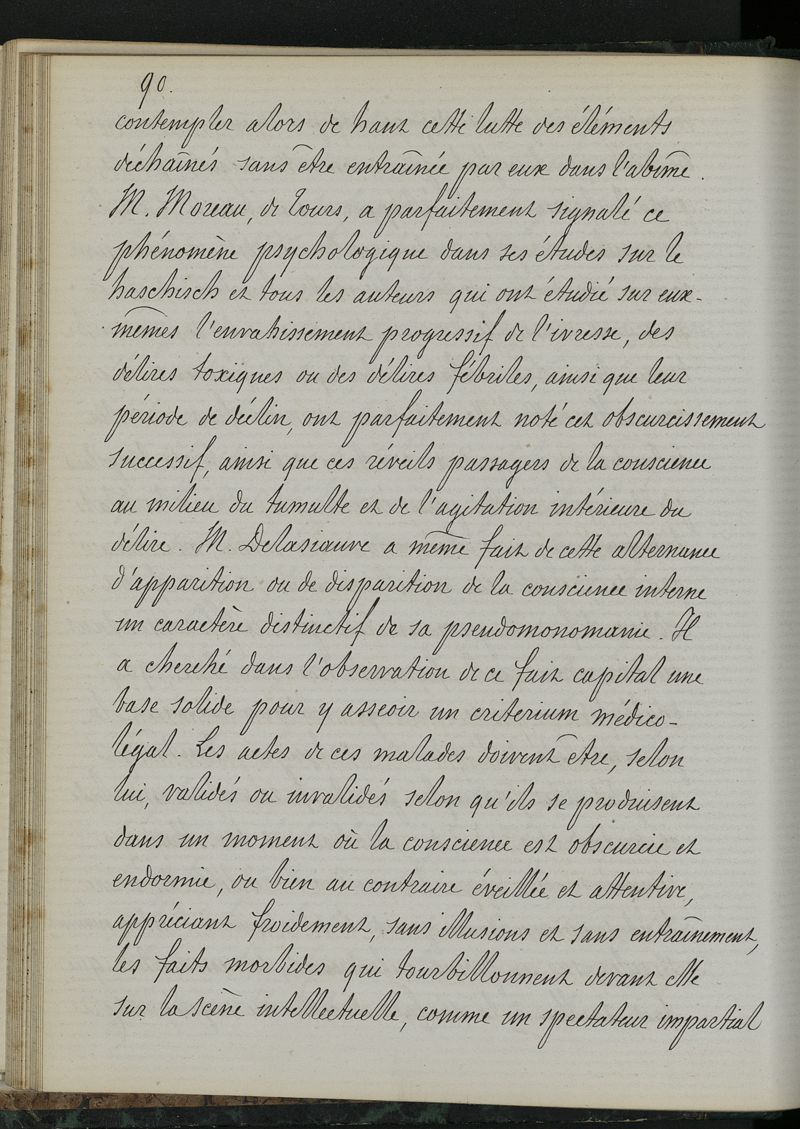 90.
contempler alors de haut cette lutte des éléments
déchaînés sans être entraînée par eux dans l'abîme.
M. Moreau, de Tours, a parfaitement signalé ce
phénomène psychologique dans ses études sur le
haschisch et tous les auteurs qui ont étudié sur eux-
mêmes l'envahissement progressif de l'ivresse, des
délires toxiques ou des délires fébriles, ainsi que leur
période de déclin, ont parfaitement noté cet obscurcissement
successif, ainsi que ces réveils passagers de la conscience
au milieu du tumulte et de l'agitation intérieure du
délire. M. Delasiauve a même fait de cette alternance
d'apparition ou de disparition de la conscience interne
un caractère distinctif de sa pseudomonomanie. Il
a cherché dans l'observation de ce fait capital une
base solide pour y asseoir un criterium médico-
légal. Les actes de ces malades doivent être, selon
lui, validés ou invalidés selon qu'ils se produisent
dans un moment où la conscience est obscurcie et
endormie, ou bien au contraire éveillée et attentive,
appréciant froidement, sans illusions et sans entraînement,
les faits morbides qui tourbillonnent devant elle
sur la scène intellectuelle, comme un spectateur impartial